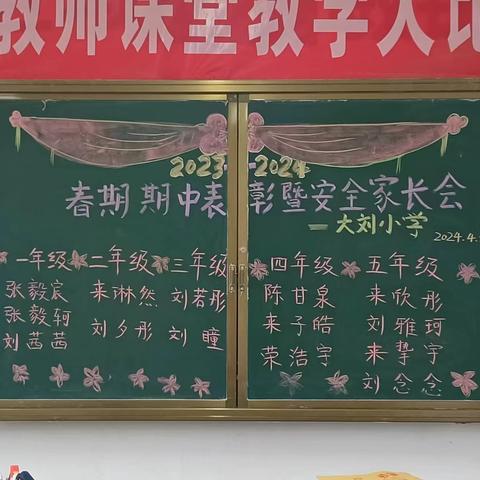 教师课堂教学大比
2023-2024
春期期中表彰暨安全家长会
—大刘小学
2024.4.
一年级 二年级 三年级 四年级 五年级
张毅宸 来琳然 刘若彤 陈甘泉 来欣彤
张毅轲 刘夕彤 刘瞳 来子皓 刘雅珂
刘茜茜 荣洁宇 来挚宇
刘念念